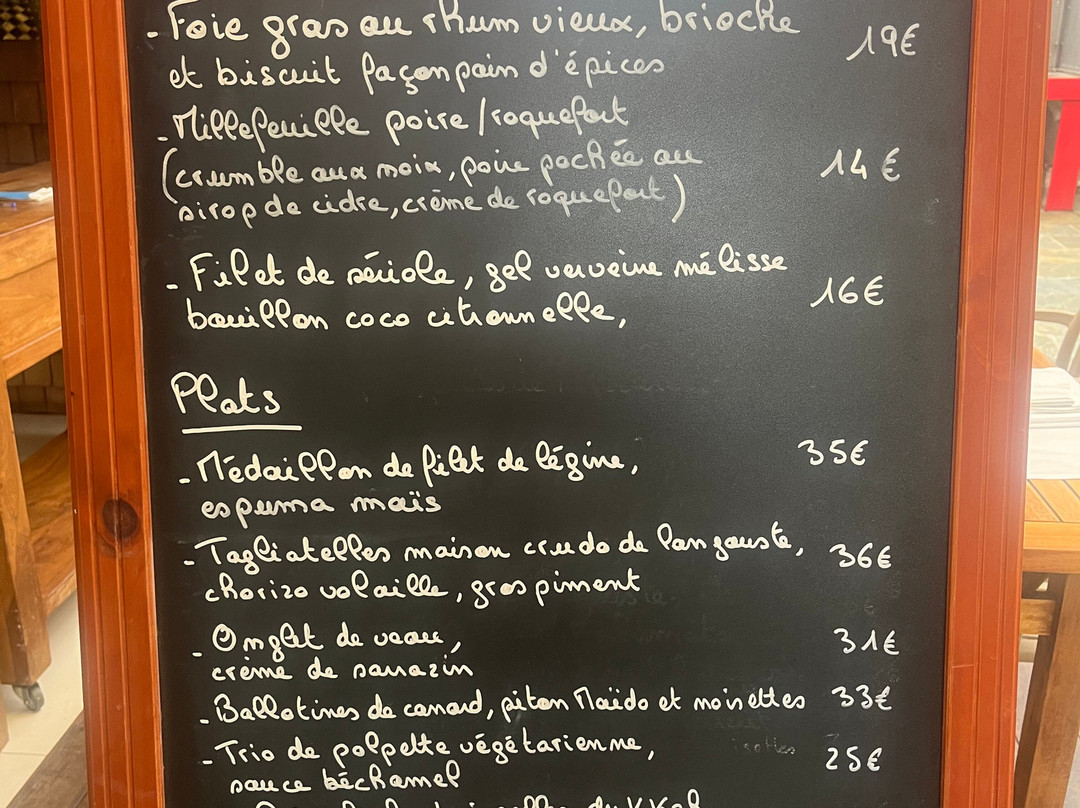 - Foie gras au rhum vieux, brioche 19€
et biscuit façon pain d'épices
- Millefeuille poire/roquefort
(crumble aux noix, poire pochée au 14€
sirop de cidre, crème de roquefort)
- Filet de sériole, gel verveine mélisse 16€
bouillon coco citronnelle,
Plats
- Médaillon de filet de légine, 35€
espuma maïs
- Tagliatelles maison crudo de langouste, 36€
chorizo volaille, gros piment
- Onglet de veau, 31€
crème de sarrazin
- Ballotines de canard, piton Maïdo et noisettes 33€
- Trio de polpette végétarienne, 25€
sauce béchamel